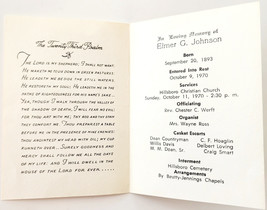 The Twenty Third Psalm
The Lord is my shepherd; I shall not want.
He maketh me to lie down in green pastures.
He leadeth me beside the still waters.
He restoreth my soul. He leadeth me in the
paths of righteousness for his name's sake.
Yea, though I walk through the valley of the
shadow of death, I will fear no evil;
for thou art with me; thy rod and thy staff
they comfort me. Thou preparest a table
before me in the presence of mine enemies;
thou anointest my head with oil; my cup
runneth over. Surely goodness and
mercy shall follow me all the days
of my life; and I will dwell in the
house of the Lord for ever.
In Loving Memory of
Elmer G. Johnson
Born
September 20, 1893
Entered Into Rest
October 9, 1970
Services
Hillsboro Christian Church
Sunday, October 11, 1970 - 2:30 p. m.
Officiating
Rev. Chester C. Werft
Organist
Mrs. Wayne Ross
Casket Escorts
Dean Countryman C. F. Hoeglin
Willis Davis Delbert Loving
W. M. Doan, Sr. Craig Smart
Interment
Hillsboro Cemetery
Arrangements
By Beatty-Jennings Chapels